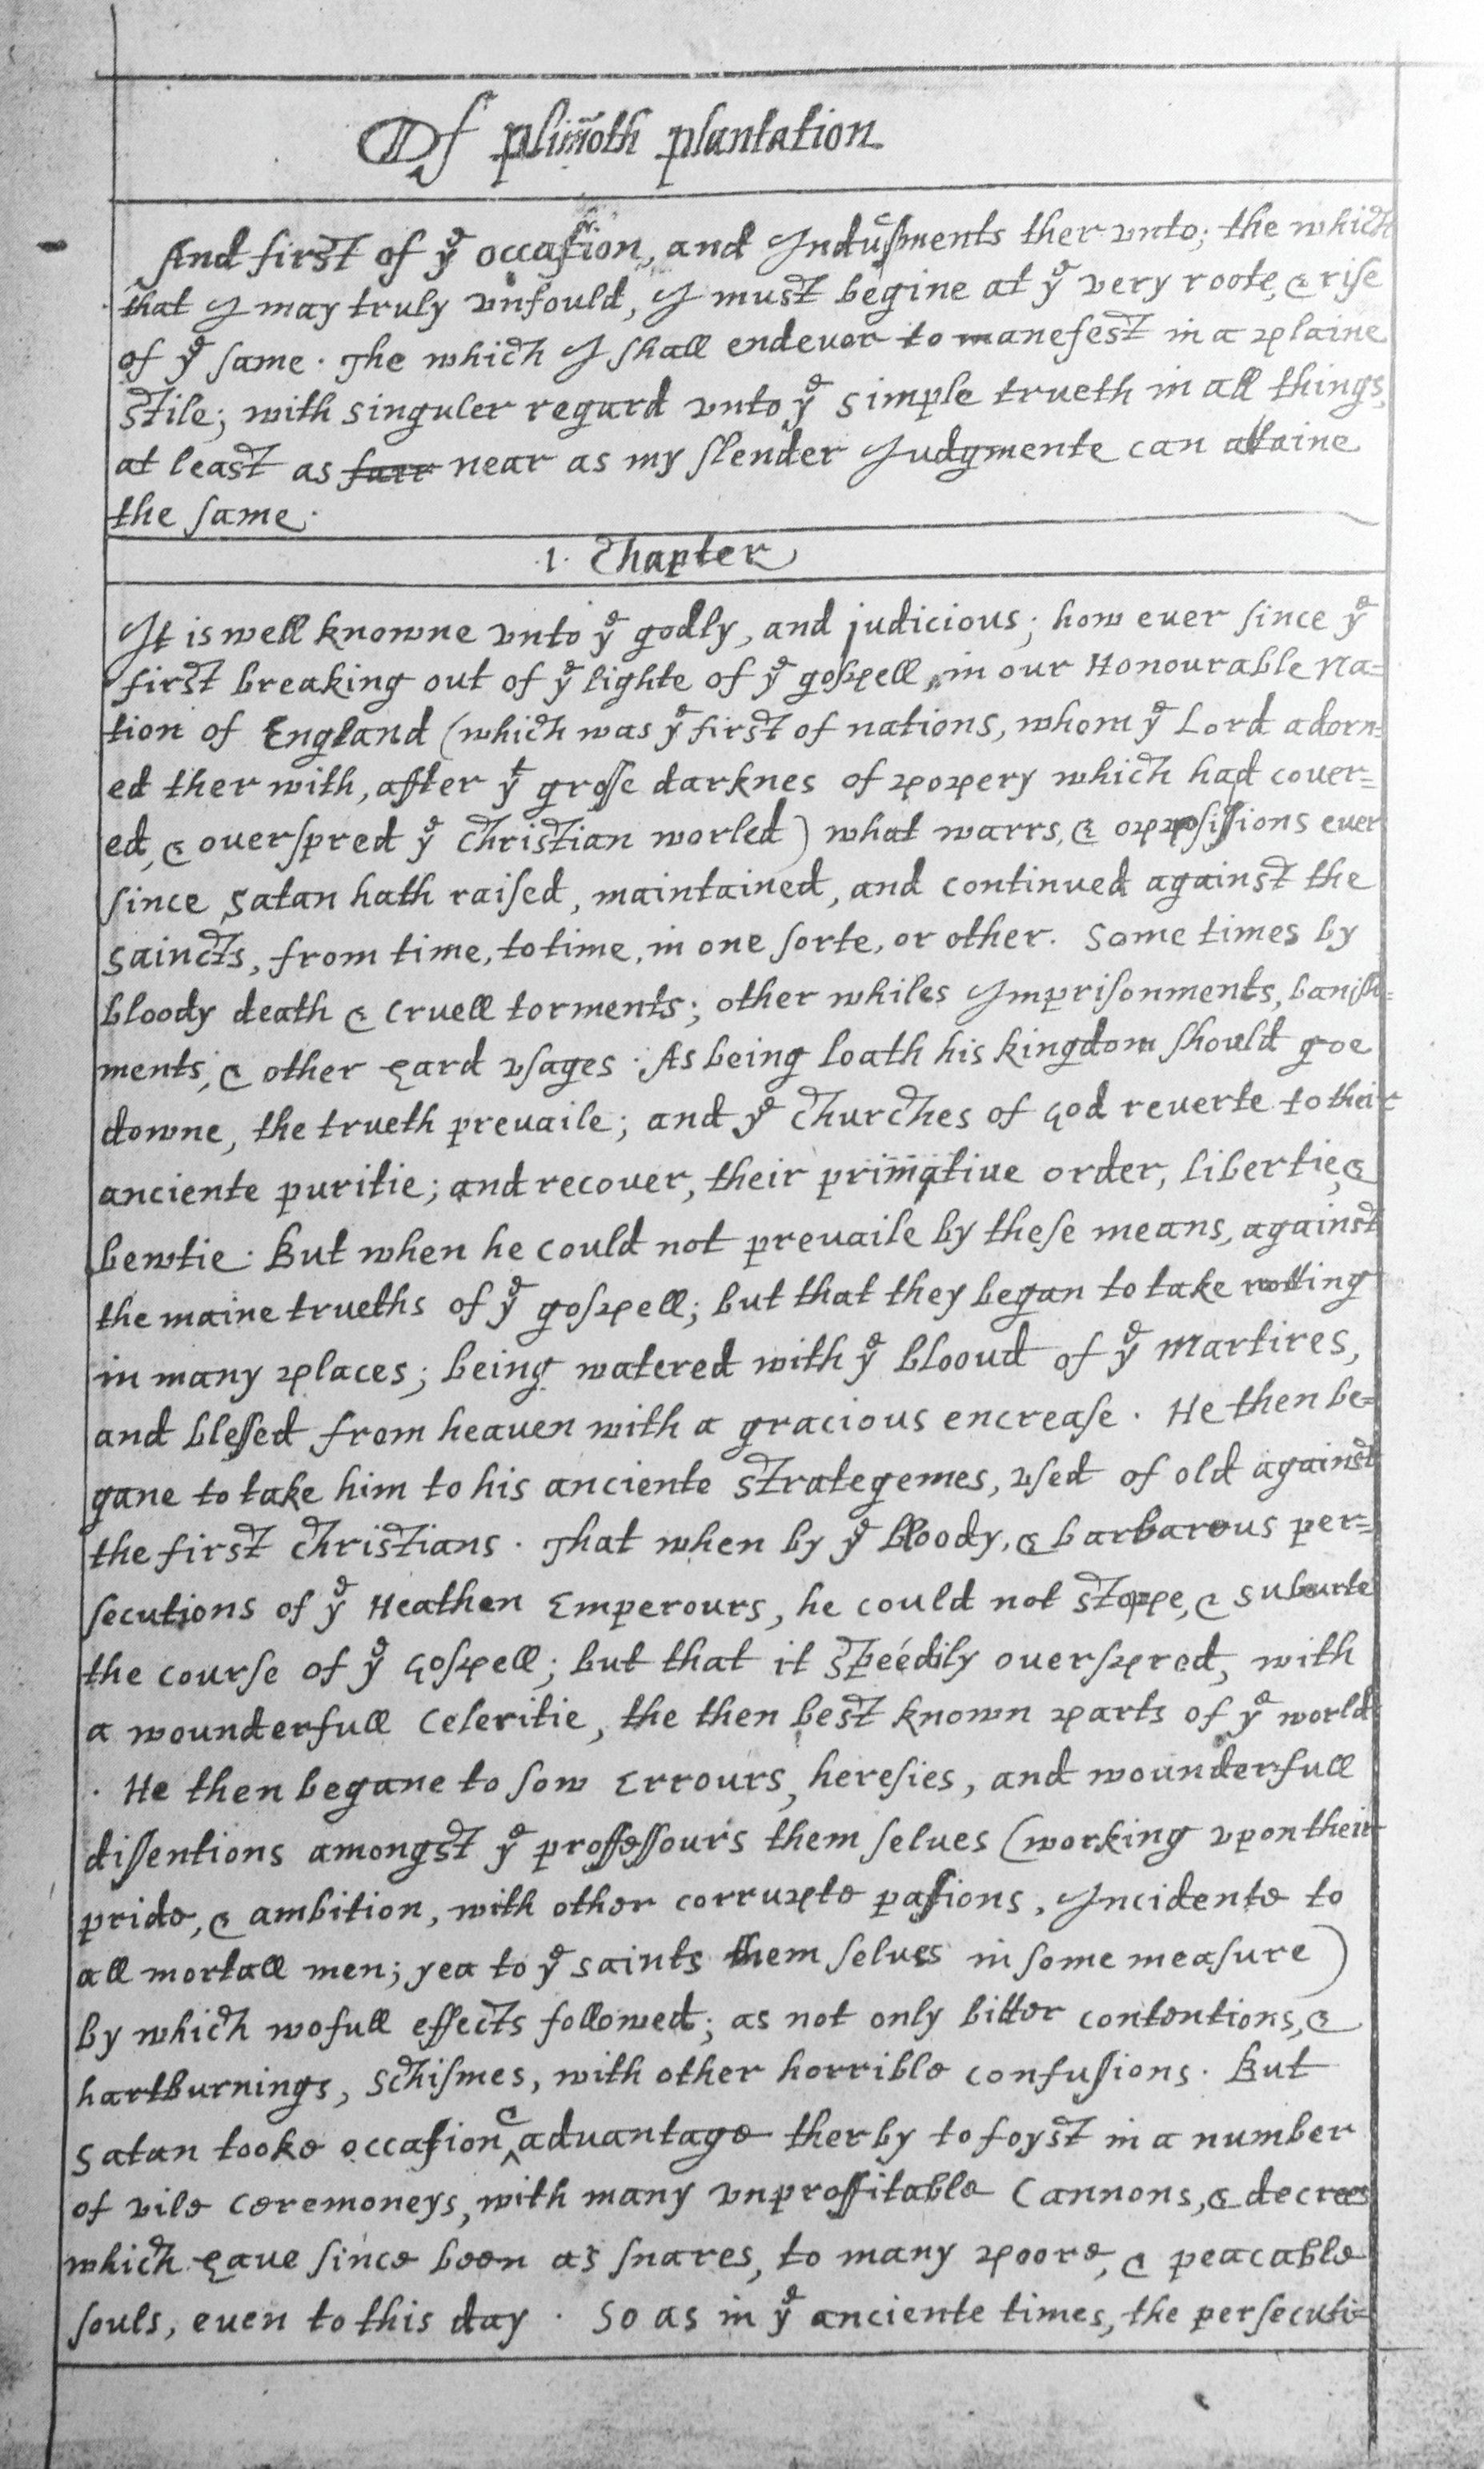 Of plim̃oth plantation
And first of yᵉ occasion, and Indusments ther unto; the which
that I may truly unfould, I must begine at yᵉ very roote, & rise
of yᵉ same. The which I shall endevor to manefest in a plaine
stile; with singuler regard unto yᵉ simple trueth in all things,
at least as farr near as my slender Judgmente can attaine
the same.
.1. Chapter
It is well knowne vnto yᵉ godly, and judicious; how ever since yᵉ
first breaking out of yᵉ lighte of yᵉ gospell, in our Honourable Na=
tion of England (which was yᵉ first of nations, whom yᵉ Lord adorn=
ed ther with, after yᵗ grosse darknes of popery which had cover=
ed, & overspred yᵉ Christian worled) what warrs, & oppossissions ever
since Satan hath raised, maintained, and continued against the
Saincts, from time, to time, in one sorte, or other. Some times by
bloody death & cruell torments; other whiles Imprisonments, banish=
ments, & other hard vsages. As being loath his kingdom should goe
downe, the trueth prevaile; and yᵉ Churches of God reverte to their
anciente puritie; and recover, their primative order, libertie, &
bewtie. But when he could not prevaile by these means, against
the maine trueths of yᵉ gospell; but that they began to take rotting
in many places; being watered with yᵉ bloud of yᵉ Martires,
and blessed from heaven with a gracious encrease. He then be=
gane to take him to his anciente strategemes, vsed of old against
the first Christians. That when by yᵉ bloody, & barbarous per=
secutions of yᵉ Heathen Emperours, he could not stoppe, & subuerte
the course of yᵉ Gospell; but that it speedily overspred, with
a wounderfull Celeritie, the then best known parts of yᵉ world
. He then begane to sow Errours, heresies, and wounderfull
dissentions amongst yᵉ proffessours them selves (working vpon their
pride, & ambition, with other corrupte passions, Incidente to
all mortall men; yea to yᵉ saints them selves in some measure)
by which wofull effects followed; as not only bitter contentions, &
hartburnings, schismes, with other horrible confusions. But
Satan tooke occasion & advantage therby to foyst in a number
of vile ceremoneys, with many vnproffitable Cannons, & decrees
which have since been as snares, to many poore, & peacable
souls, even to this day. So as in yᵉ anciente times, the persecuti=